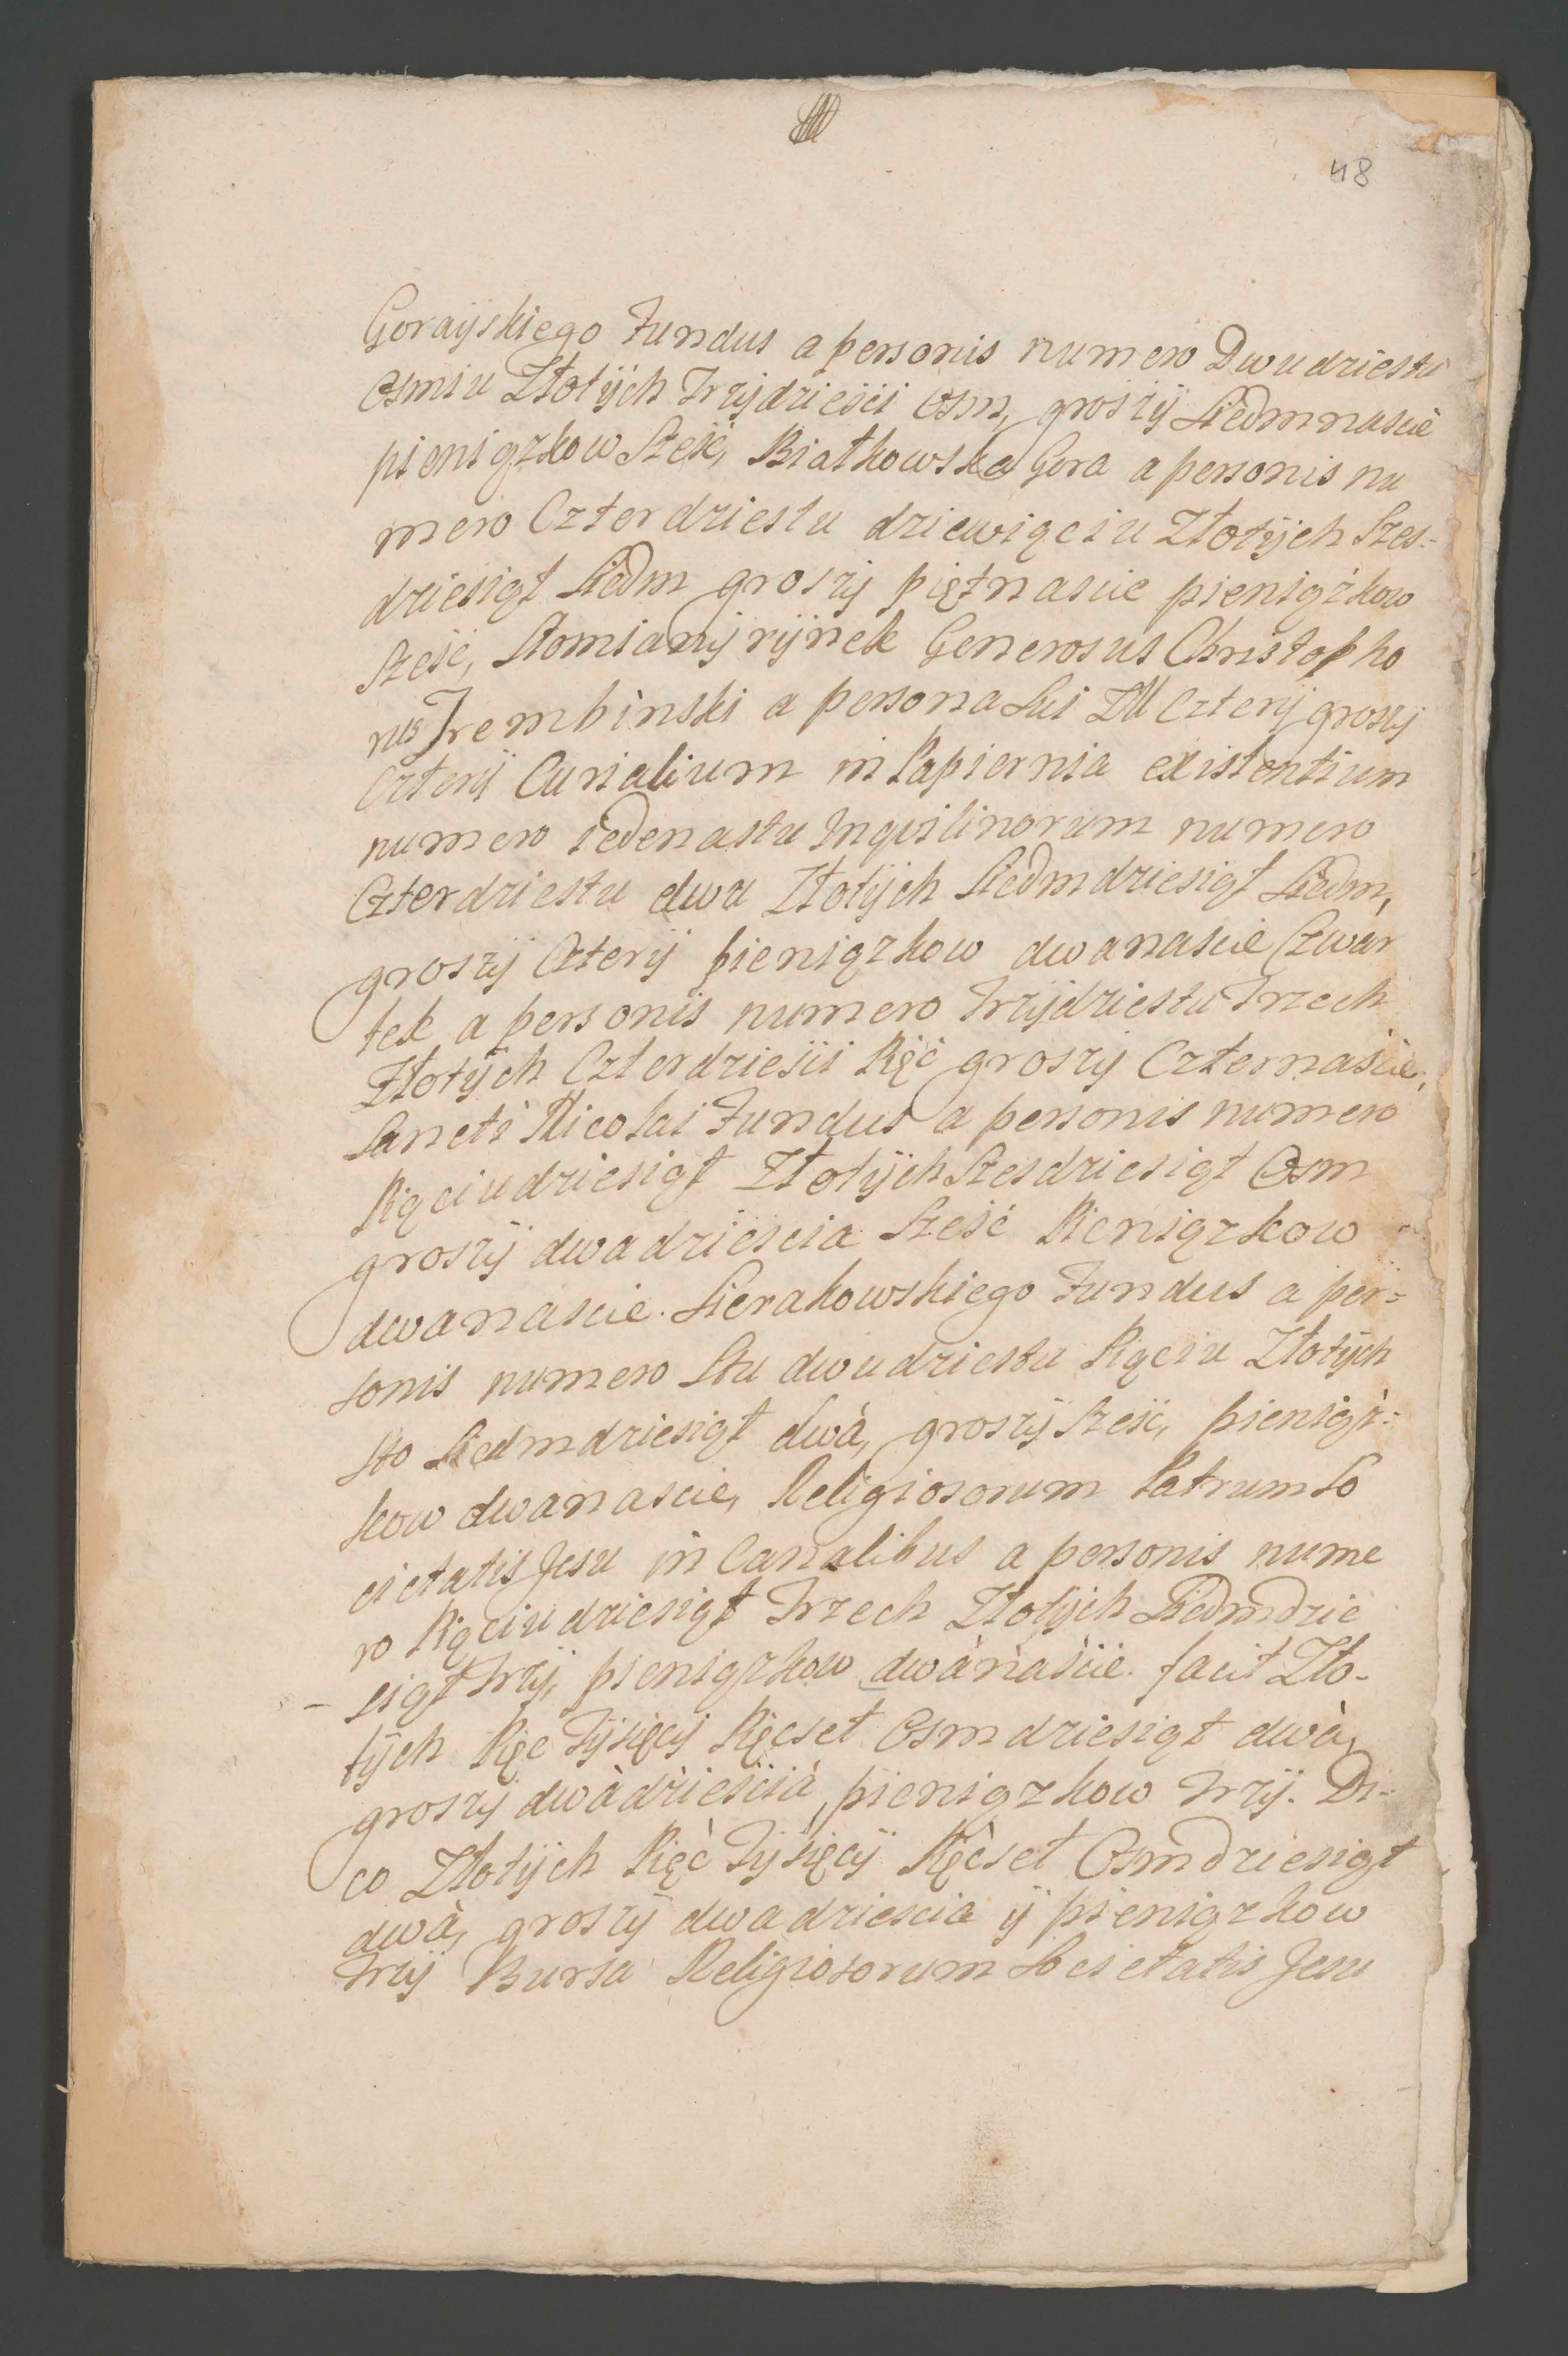 48
Goraÿskiego Fundus a personis numero Dwudziestu
Osmiu Złotÿch Trzÿdziesci Osm, groszÿ Siedmnascie
pieniązkow Szesć, Białkowska Gora a personis nu
mero Czterdziestu dziewiąciu Złotÿch Szes=
dziesiąt Siedm groszÿ piętnascie pieniążkow
Szesć, Słomianÿ rÿnek Generosus Christopho
rus Trembinski a persona Sui Zll Czterÿ groszÿ
Czterÿ Curialium in Papiernia existentium
numero iedenastu Inqvilinorum numero
Czterdziestu dwu Złotÿch Siedmdziesiąt Siedm,
groszÿ Czterÿ pieniązkow dwanascie Czwar
tek a personis numero Trzÿdziestu Trzech
Złotÿch Czterdziesci Pięć groszÿ Czternascie,
Sancti Nicolai Fundus a personis numero
Piąciudziesiąt Złotÿch Szesdziesiąt Osm
groszÿ dwadziescia Szesć Pieniązkow
dwanascie. Sierakowskiego Fundus a per=
sonis numero Stu dwudziestu Piąciu Złotÿch
sto Siedmdziesiąt dwà, groszÿ Szesć, pieniąż=
kow dwanascie, Religiosorum Patrum So
cietatis Jesu in Canalibus a personis nume
ro Piąciudziesiąt Trzech Złotÿch Siedmdzie
siąt trzÿ, pieniązkow dwànàscie. facit Zło-
tÿch Pięc Tÿsięcÿ Pięcset Osmdziesiąt dwà,
groszÿ dwàdziescià, pieniązkow trzÿ. Di-
co Złotÿch Pięć Tÿsięcÿ Pięcset Osmdziesiąt
dwà, groszÿ dwadziescia ÿ pieniązkow
trzÿ Bursa Religiosorum Societatis Jesu